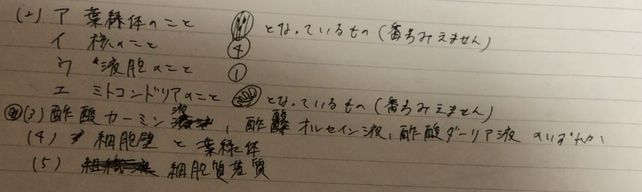 (2) ア 葉緑体のこと となっているもの (番号みえません)
イ 核のこと ④
ウ 液胞のこと ①
エ ミトコンドリアのこと となっているもの (番号みえません)
(3) 酢酸カーミン液, 酢酸オルセイン液, 酢酸ダーリア液 のいずれか
(4) 細胞壁 と 葉緑体
(5) 細胞質基質